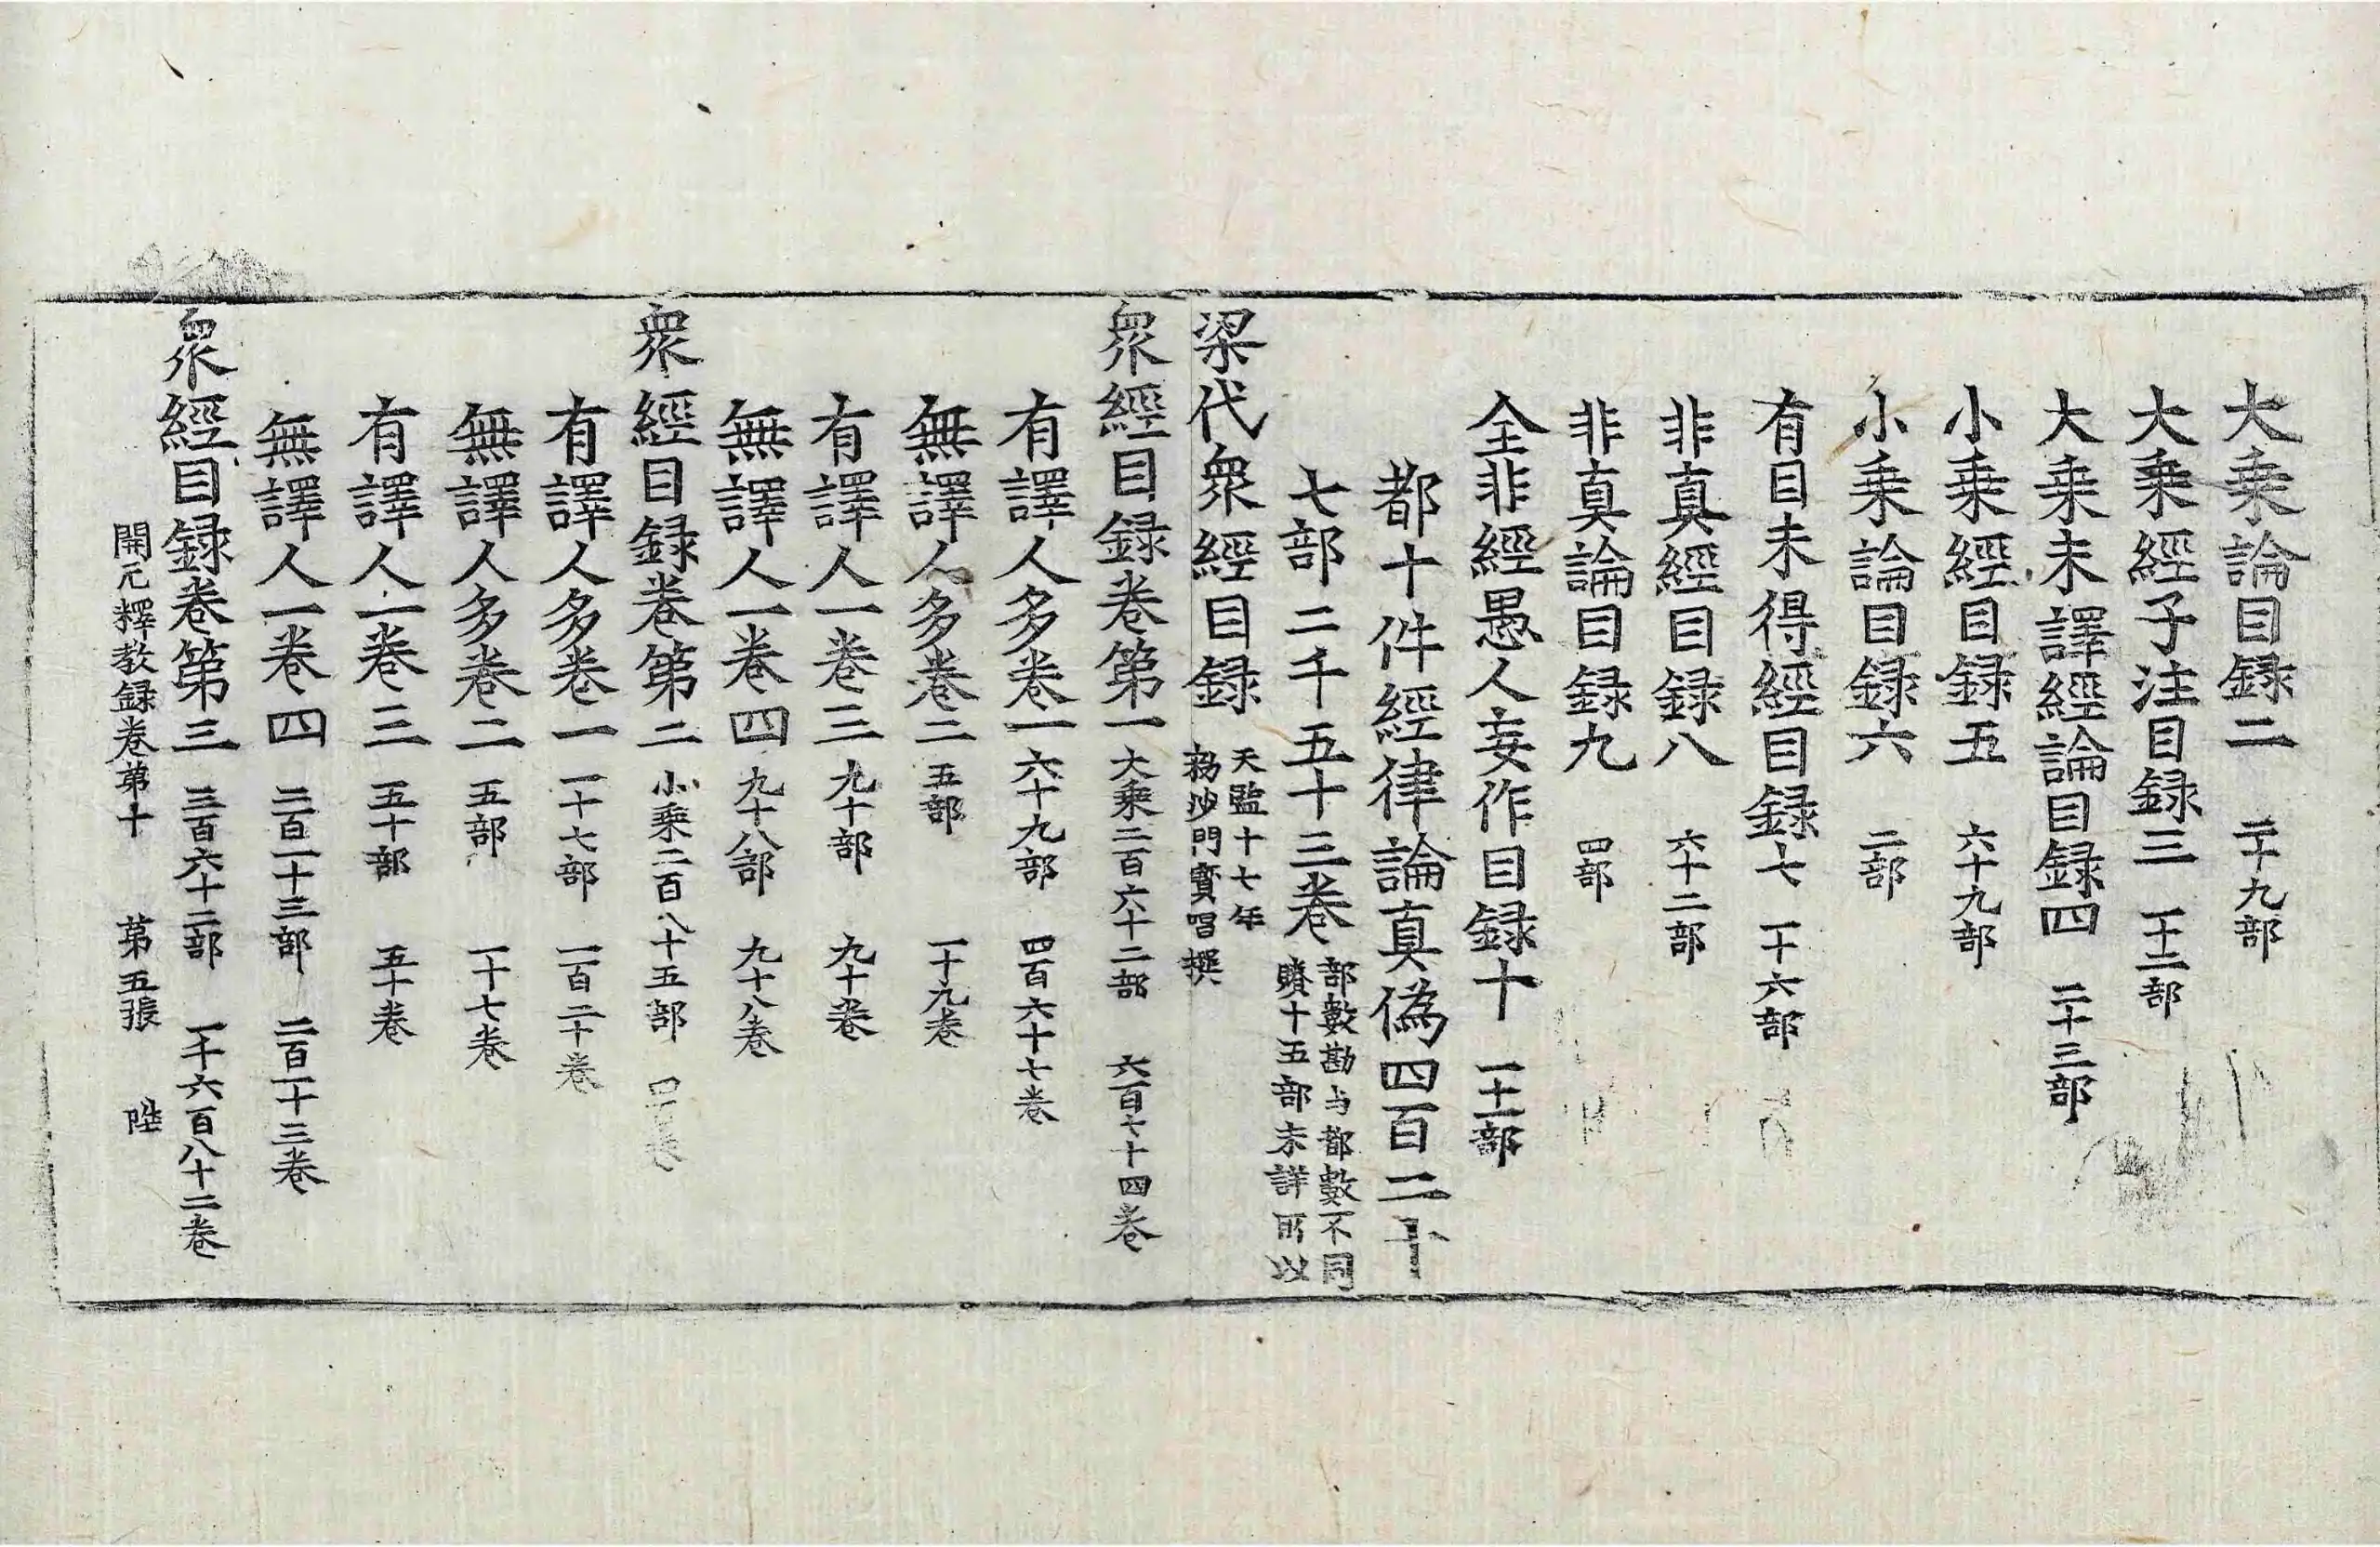 大乗論目録二 二十九部
大乗經子注目録三 一十二部
大乗未譯經論目録四 二十三部
小乗經目録五 六十九部
小乗論目録六 二部
有目未得經目録七 一十六部
非真經目録八 六十二部
非真論目録九 四部
全非經愚人妄作目録十 一十一部
都十件經律論真偽四百二十
七部二千五十三卷 部數勘与都數不同
賸十五部未詳所以
梁代衆經目録 天監十七年
勑沙門寶唱撰
衆經目録卷第一 大乘二百六十二部 六百七十四卷
有譯人多卷一 六十九部 四百六十七卷
無譯人多卷二 五部 一十九卷
有譯人一卷三 九十部 九十卷
無譯人一卷四 九十八部 九十八卷
衆經目録卷第二 小乘二百八十五部
有譯人多卷一 一十七部 一百二十卷
無譯人多卷二 五部 一十七卷
有譯人一卷三 五十部 五十卷
無譯人一卷四 二百一十三部 二百一十三卷
衆經目録卷第三 三百六十二部 一千六百八十二卷
開元釋教録卷苐十 苐五張 陞